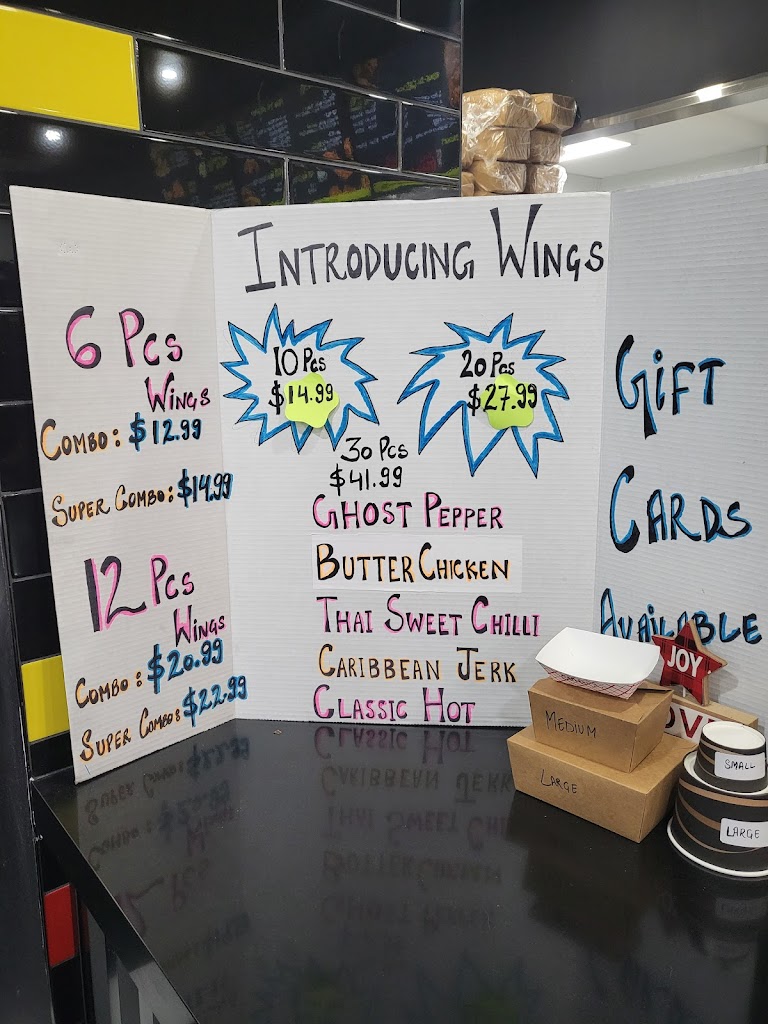 INTRODUCING WINGS
6 Pcs
WINGS
COMBO: $12.99
SUPER COMBO: $14.99
12 Pcs
WINGS
COMBO: $20.99
SUPER COMBO: $22.99
10 Pcs
$14.99
20 Pcs
$27.99
30 Pcs
$41.99
GHOST PEPPER
BUTTER CHICKEN
THAI SWEET CHILLI
CARIBBEAN JERK
CLASSIC HOT
GiFT
CARDS
AVAiLABLE
JOY
MEDIUM
LARGE
SMALL
LARGE